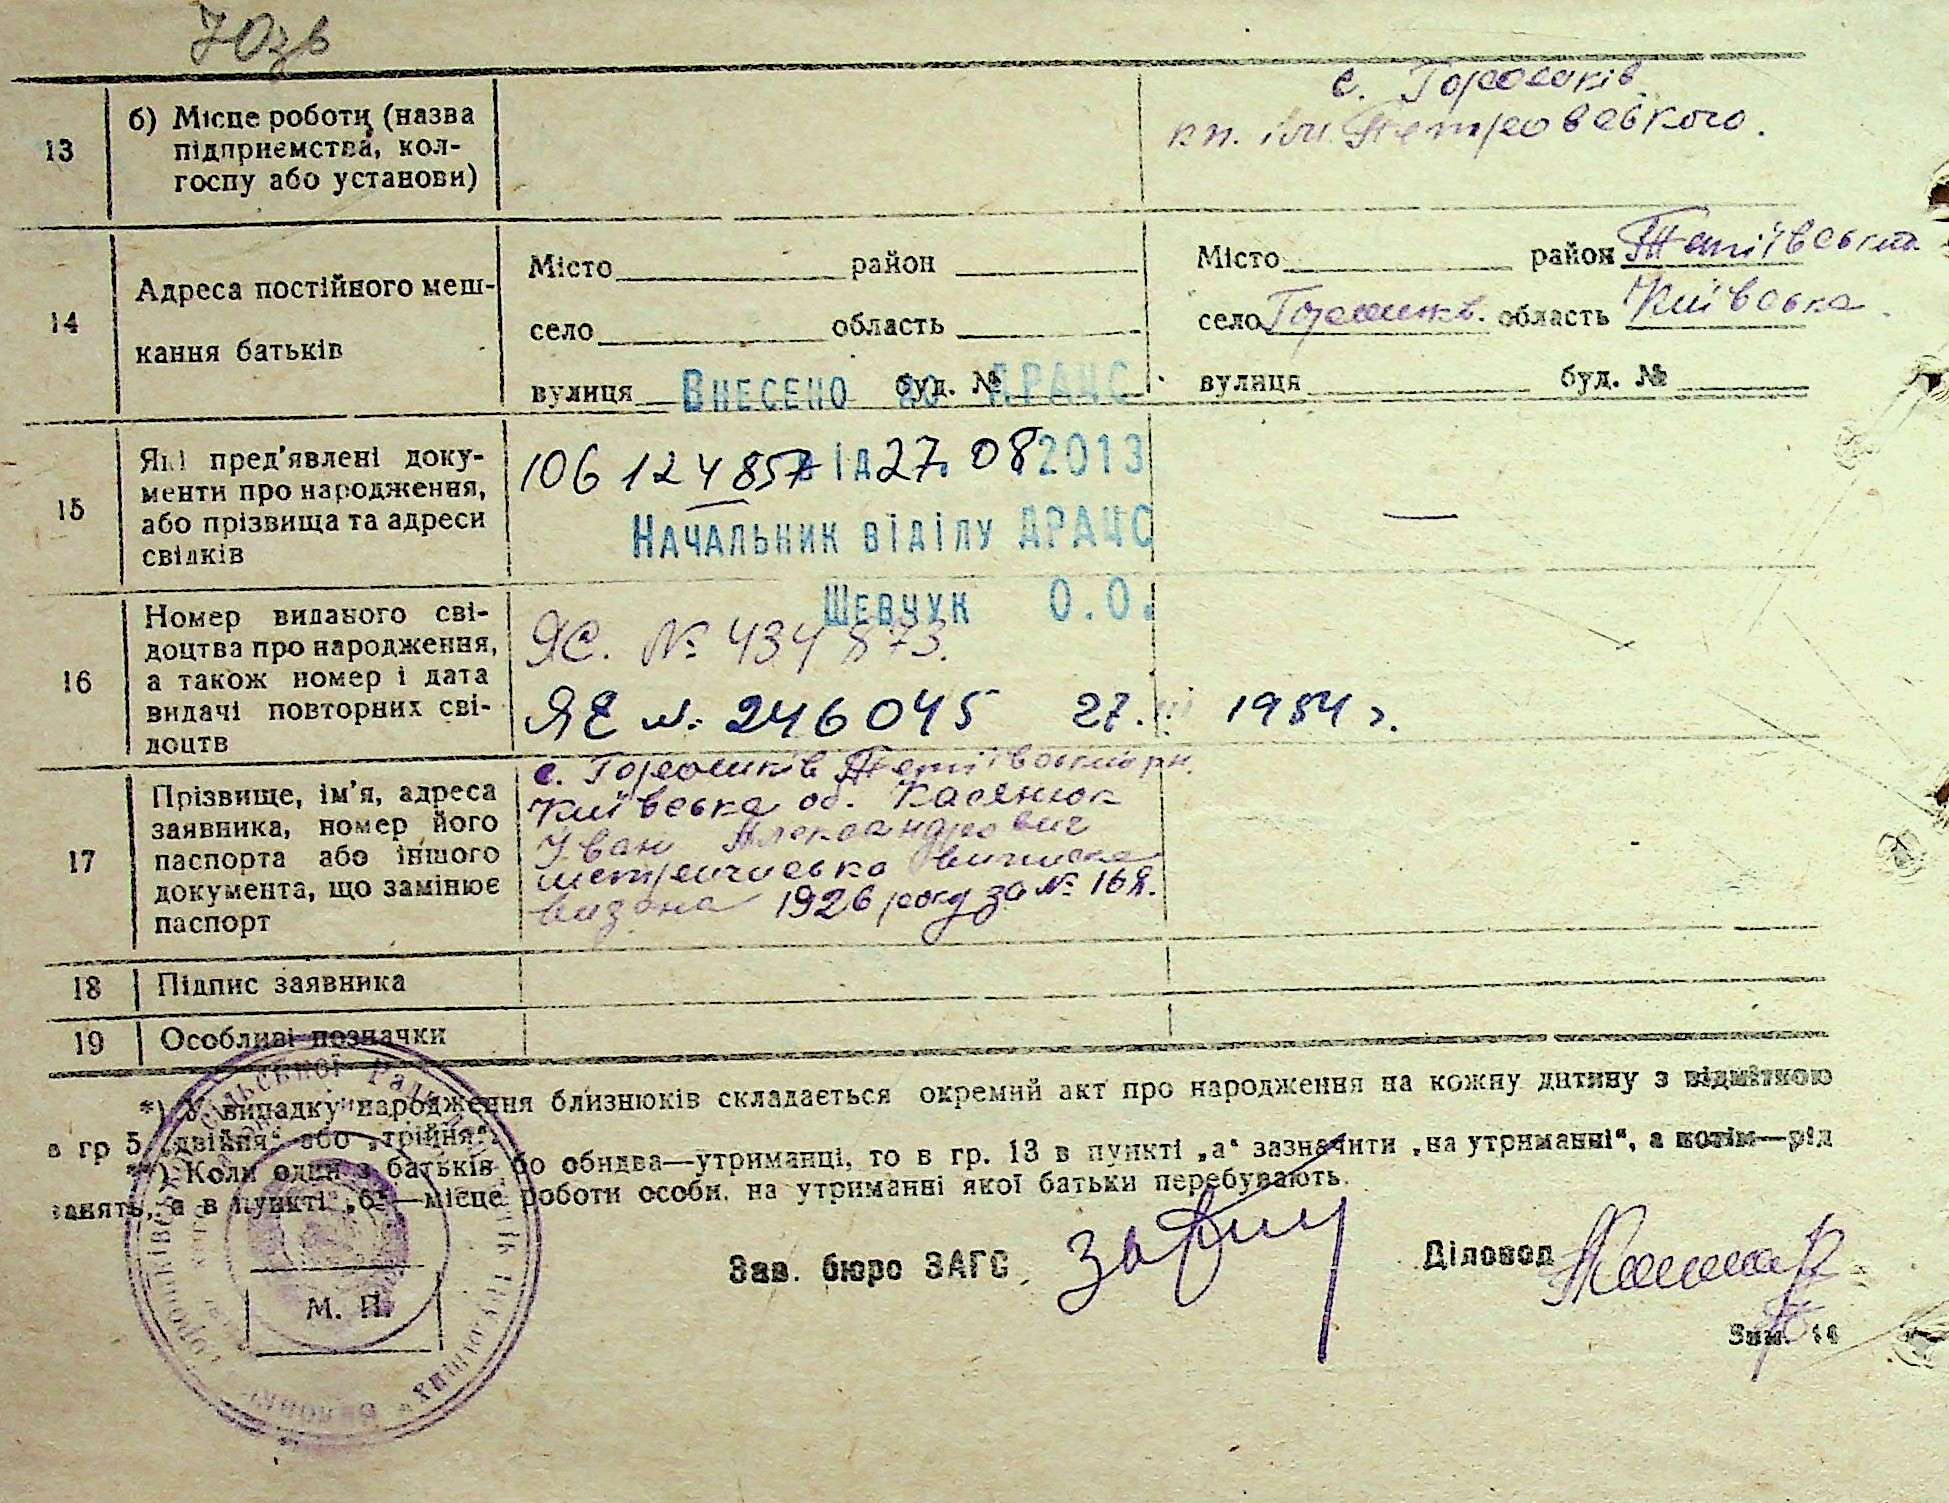 70зв
13
б) Місце роботи (назва
підприємства, кол-
госпу або установи)
с. Горошків
кп. ім Петровського.
14
Адреса постійного меш-
кання батьків
Місто район
село область
вулиця буд. №
Місто район Тетіївський
село Горошків. область Київська.
вулиця буд. №
Внесено до ДРАЦС
15
Які пред'явлені доку-
менти про народження,
або прізвища та адреси
свідків
106 124857 від 27. 08 2013
Начальник відділу ДРАЦС
Шевчук О.О.
—
16
Номер виданого сві-
доцтва про народження,
а також номер і дата
видачі повторних сві-
доцтв
ЯС. № 434873.
ЯЕ № 246045 27. 1954 г.
17
Прізвище, ім'я, адреса
заявника, номер його
паспорта або іншого
документа, що замінює
паспорт
с. Горошків Тетіївський рн.
Київська об. Касянюк
Іван Александрович
метрична виписка
видана 1926 року за № 168.
18
Підпис заявника
19
Особливі позначки
*) У випадку народження близнюків складається окремий акт про народження на кожну дитину з відміткою
в гр 5 „двійня“ або „трійня“.
**) Коли один з батьків бо обидва—утриманці, то в гр. 13 в пункті „а“ зазначити „на утриманні“, а потім—рід
занять, а в пункті „б“—місце роботи особи, на утриманні якої батьки перебувають.
Зав. бюро ЗАГС
Діловод
М. П.
Зам.